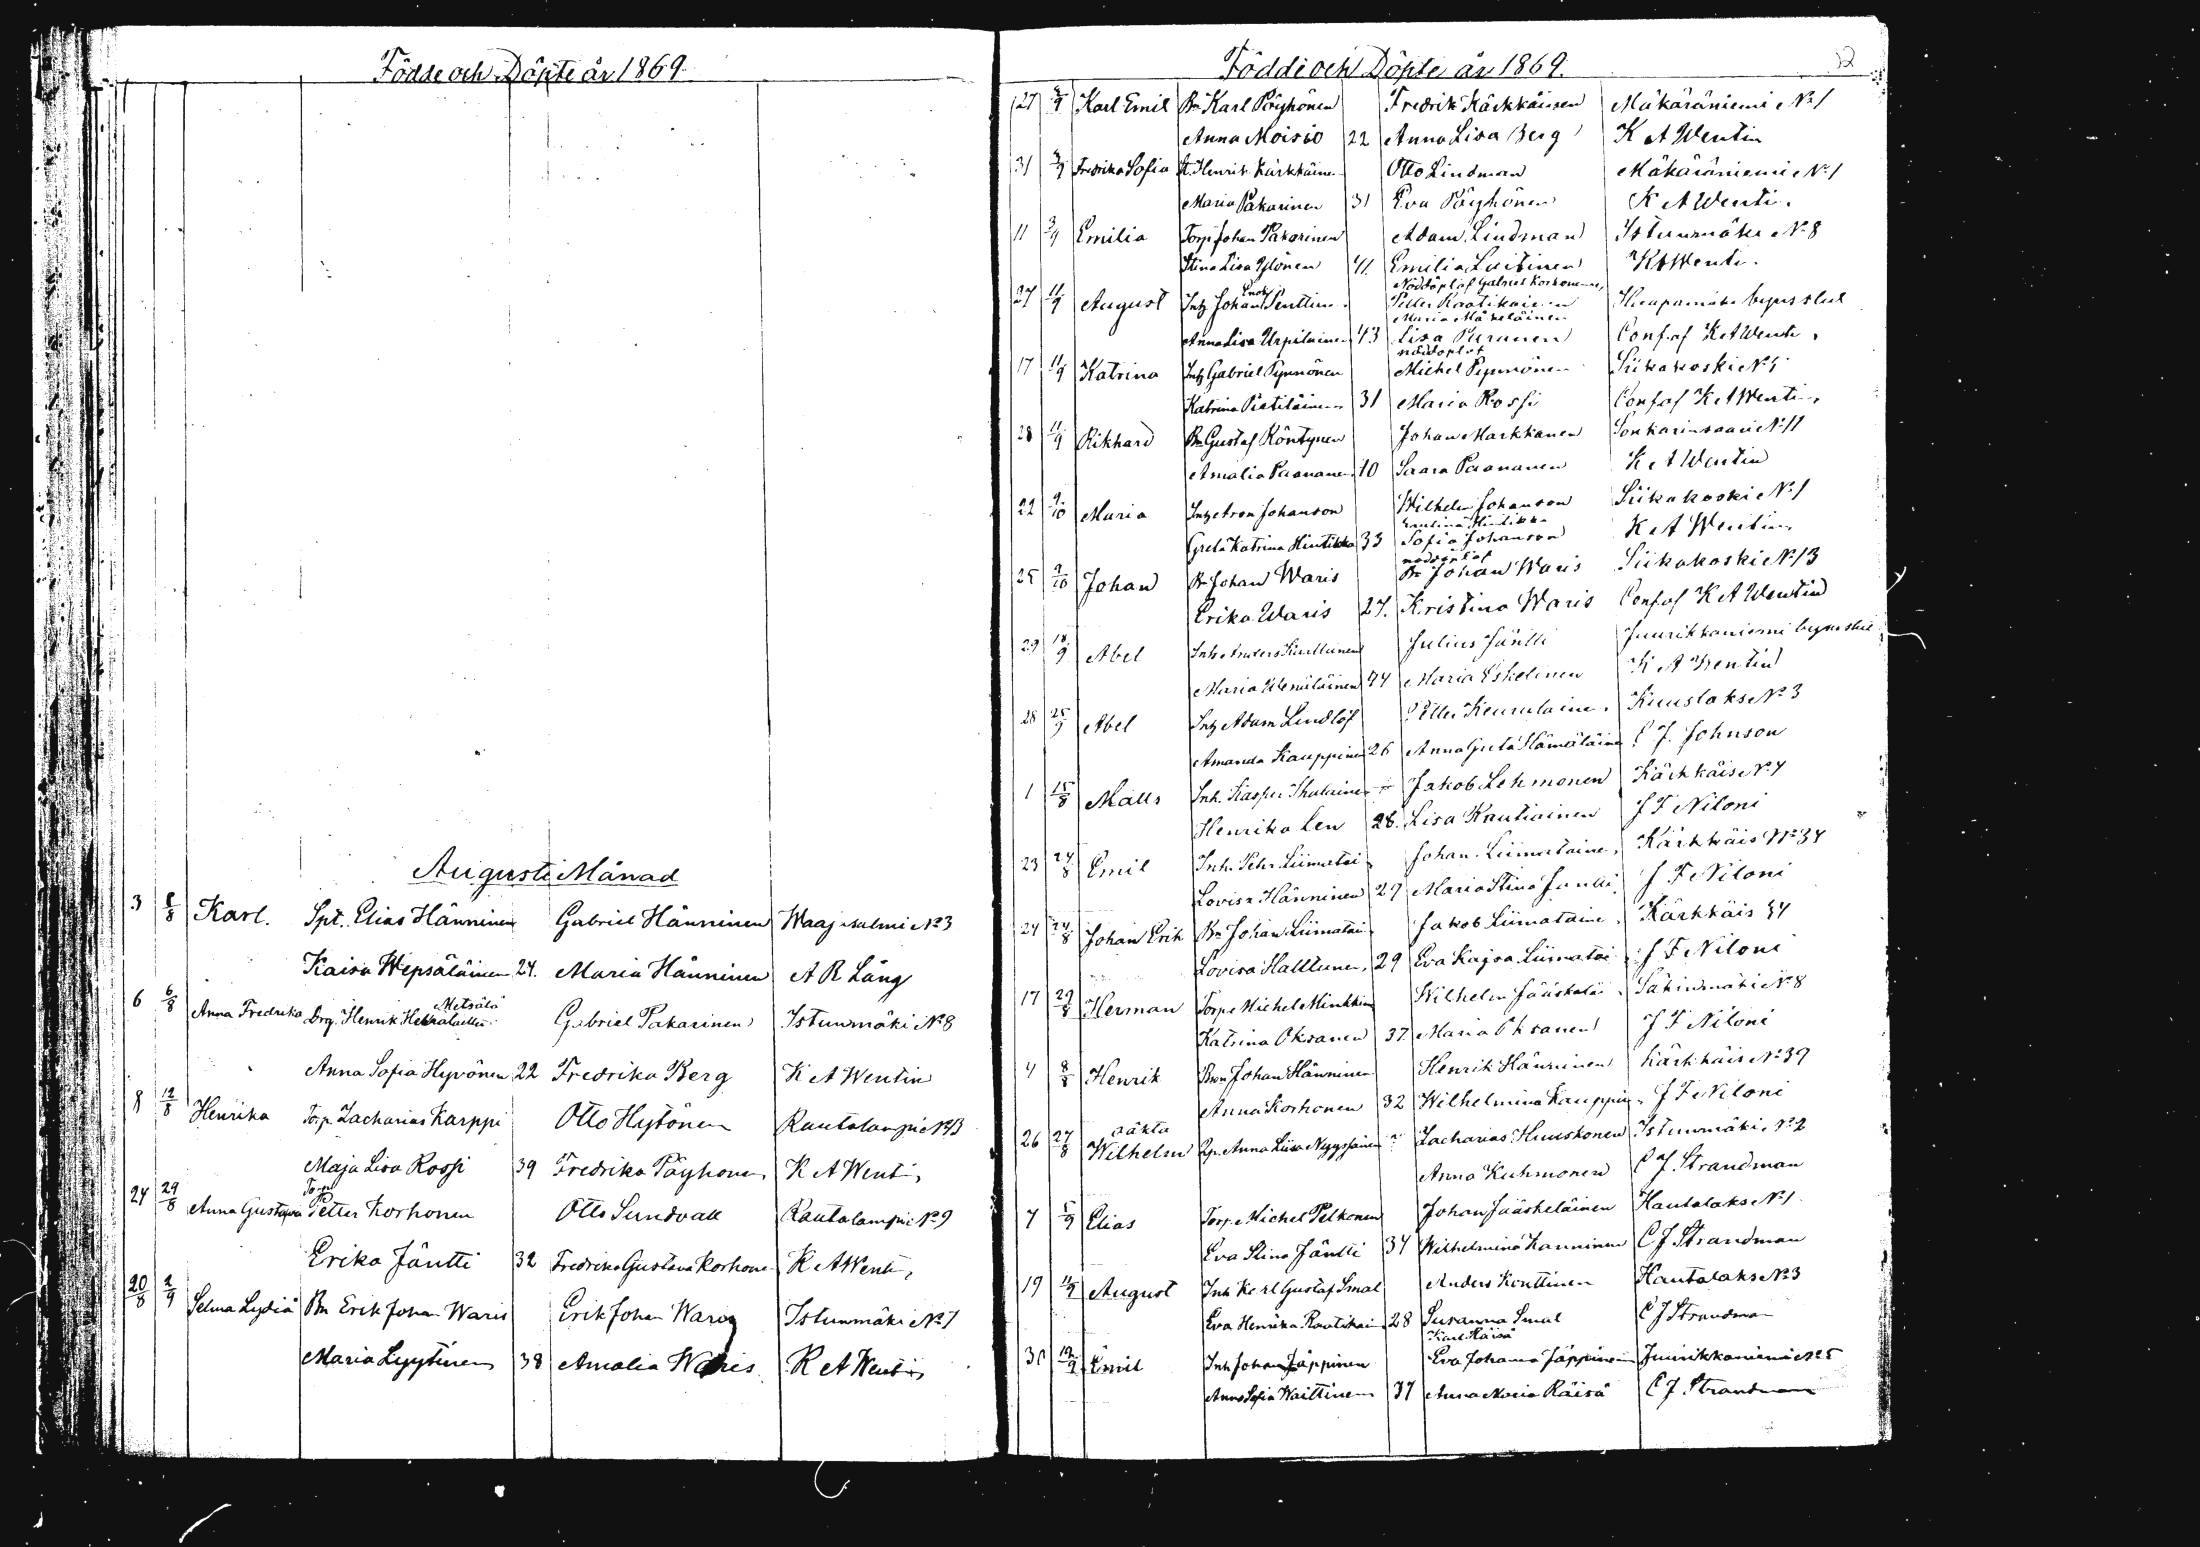 Födde och Döpte år 1869
Augusti Månad
3 8/8 Karl. Spt. Elias Hänninen Gabriel Hänninen Waajasalmi No 3
Kaisa Wepsäläinen 24. Maria Hänninen A R Lång
6 6/8 Anna Fredrika Drg. Henrik Metsälä Gabriel Pakarinen Istunmäki No 8
Anna Sofia Hyvönen 22 Fredrika Berg K A Wentin
8 12/8 Henrika Torp. Zacharias Karppi Otto Hytönen Rautalampi No 13
Maja Lisa Rossi 39 Fredrika Pöyhönen K A Wentin
24 29/8 Anna Gustava Torp Petter Korhonen Otto Sundvall Rautalampi No 9
Erika Jäntti 32 Fredrika Gustava Korhonen K A Wentin
20/8 2/9 Selma Lydia Bn Erik Johan Waris Erik Johan Waris Istunmäki No 7
Maria Lyytinen 38 Amalia Waris K A Wentin
Födde och Döpte år 1869. 12
27 2/9 Karl Emil Bn Karl Pöyhönen Fredrik Kärkkäinen Mäkäräniemi No 1
Anna Moisio 22 Anna Lisa Berg K A Wentin
31 2/9 Fredrika Sofia Henrik Kärkkäinen Otto Lindman Mäkäräniemi No 1
Maria Pakarinen 31 Eva Pöyhönen K A Wentin
11 3/9 Emilia Torp Johan Pakarinen Adam Lindman Istunmäki No 8
Stina Lisa Ylönen 41. Emilia Luitinen K A Wentin
Nöddöpt af Gabriel Korhonen
27 11/9 August Inh Johan Penttinen Petter Raatikainen Haapamäki byns slut
Maria Mäkeläinen
Anna Lisa Urpilainen 43 Lisa Puranen Conf. af K A Wentin
nöddöpt af
17 11/9 Katrina Inh Gabriel Pynnönen Michel Pynnönen Siikakoski No 5
Katrina Pietiläinen 31 Maria Rossi Conf af K A Wentin
28 11/9 Rikhard Bn Gustaf Köntynen Johan Markkanen Sonkarinsaari No 11
Amalia Paananen 40 Saara Paananen K A Wentin
22 9/10 Maria Inh Aron Johanson Wilhelm Johanson Siikakoski No 1
Greta Katrina Hintikka 33 Sofia Johanson K A Wentin
nöddöpt af
25 9/10 Johan Bn Johan Waris Bn Johan Waris Siikakoski No 13
Erika Waris 27. Kristina Waris Conf af K A Wentin
29 18/9 Abel Inh Anders Kinnunen Julius Jäntti Juurikkaniemi byns slut
Maria Wenäläinen 44 Maria Eskelinen K A Wentin
28 25/9 Abel Inh Adam Lindlöf Petter Keurulainen Kuuslaks No 3
Amanda Kauppinen 26 Anna Greta Hämäläinen C J Johnson
1 15/8 Matts Inh. Kasper Jakob Lehmonen Kärkkäis No 4
Henrika Len 28. Lisa Rautiainen J F Niloni
23 24/8 Emil Inh. Petter Liimatai Johan Liimatainen Kärkkäis No 34
Lovisa Hänninen 29 Maria Stina Jantti J F Niloni
24 24/8 Johan Erik Bn Johan Liimatain Jakob Liimatainen Kärkkäis 34
Lovisa Halttunen 29 Eva Kajsa Liimatai J F Niloni
17 29/8 Herman Torp Michel Minkkinen Wilhelm Jääskeläi Säkinmäki No 8
Katrina Oksanen 37 Maria Oksanen J F Niloni
4 8/8 Henrik Bn Johan Hänninen Henrik Hänninen Kärkkäis No 39
Anna Korhonen 32 Wilhelmina Kauppin J F Niloni
oäkta
26 27/8 Wilhelm Anna Liisa Nyyssönen Zacharias Huuskonen Istunmäki No 2
Anna Kuhmonen C J Strandman
7 5/9 Elias Torp Michel Pelkonen Johan Jääskeläinen Hautalaks No 1
Eva Stina Jäntti 34 Wilhelmina Hänninen C J Strandman
19 11/9 August Inh Karl Gustaf Smal Anders Konttinen Hautalaks No 3
Eva Henrika Raatikain 28 Susanna Smal C J Strandman
Karl Räisä
31 12/9 Emil Inh Johan Jäppinen Eva Johana Jäppinen Juurikkaniemi No 5
Anna Sofia Waittinen 37 Anna Maria Räisä C J Strandman